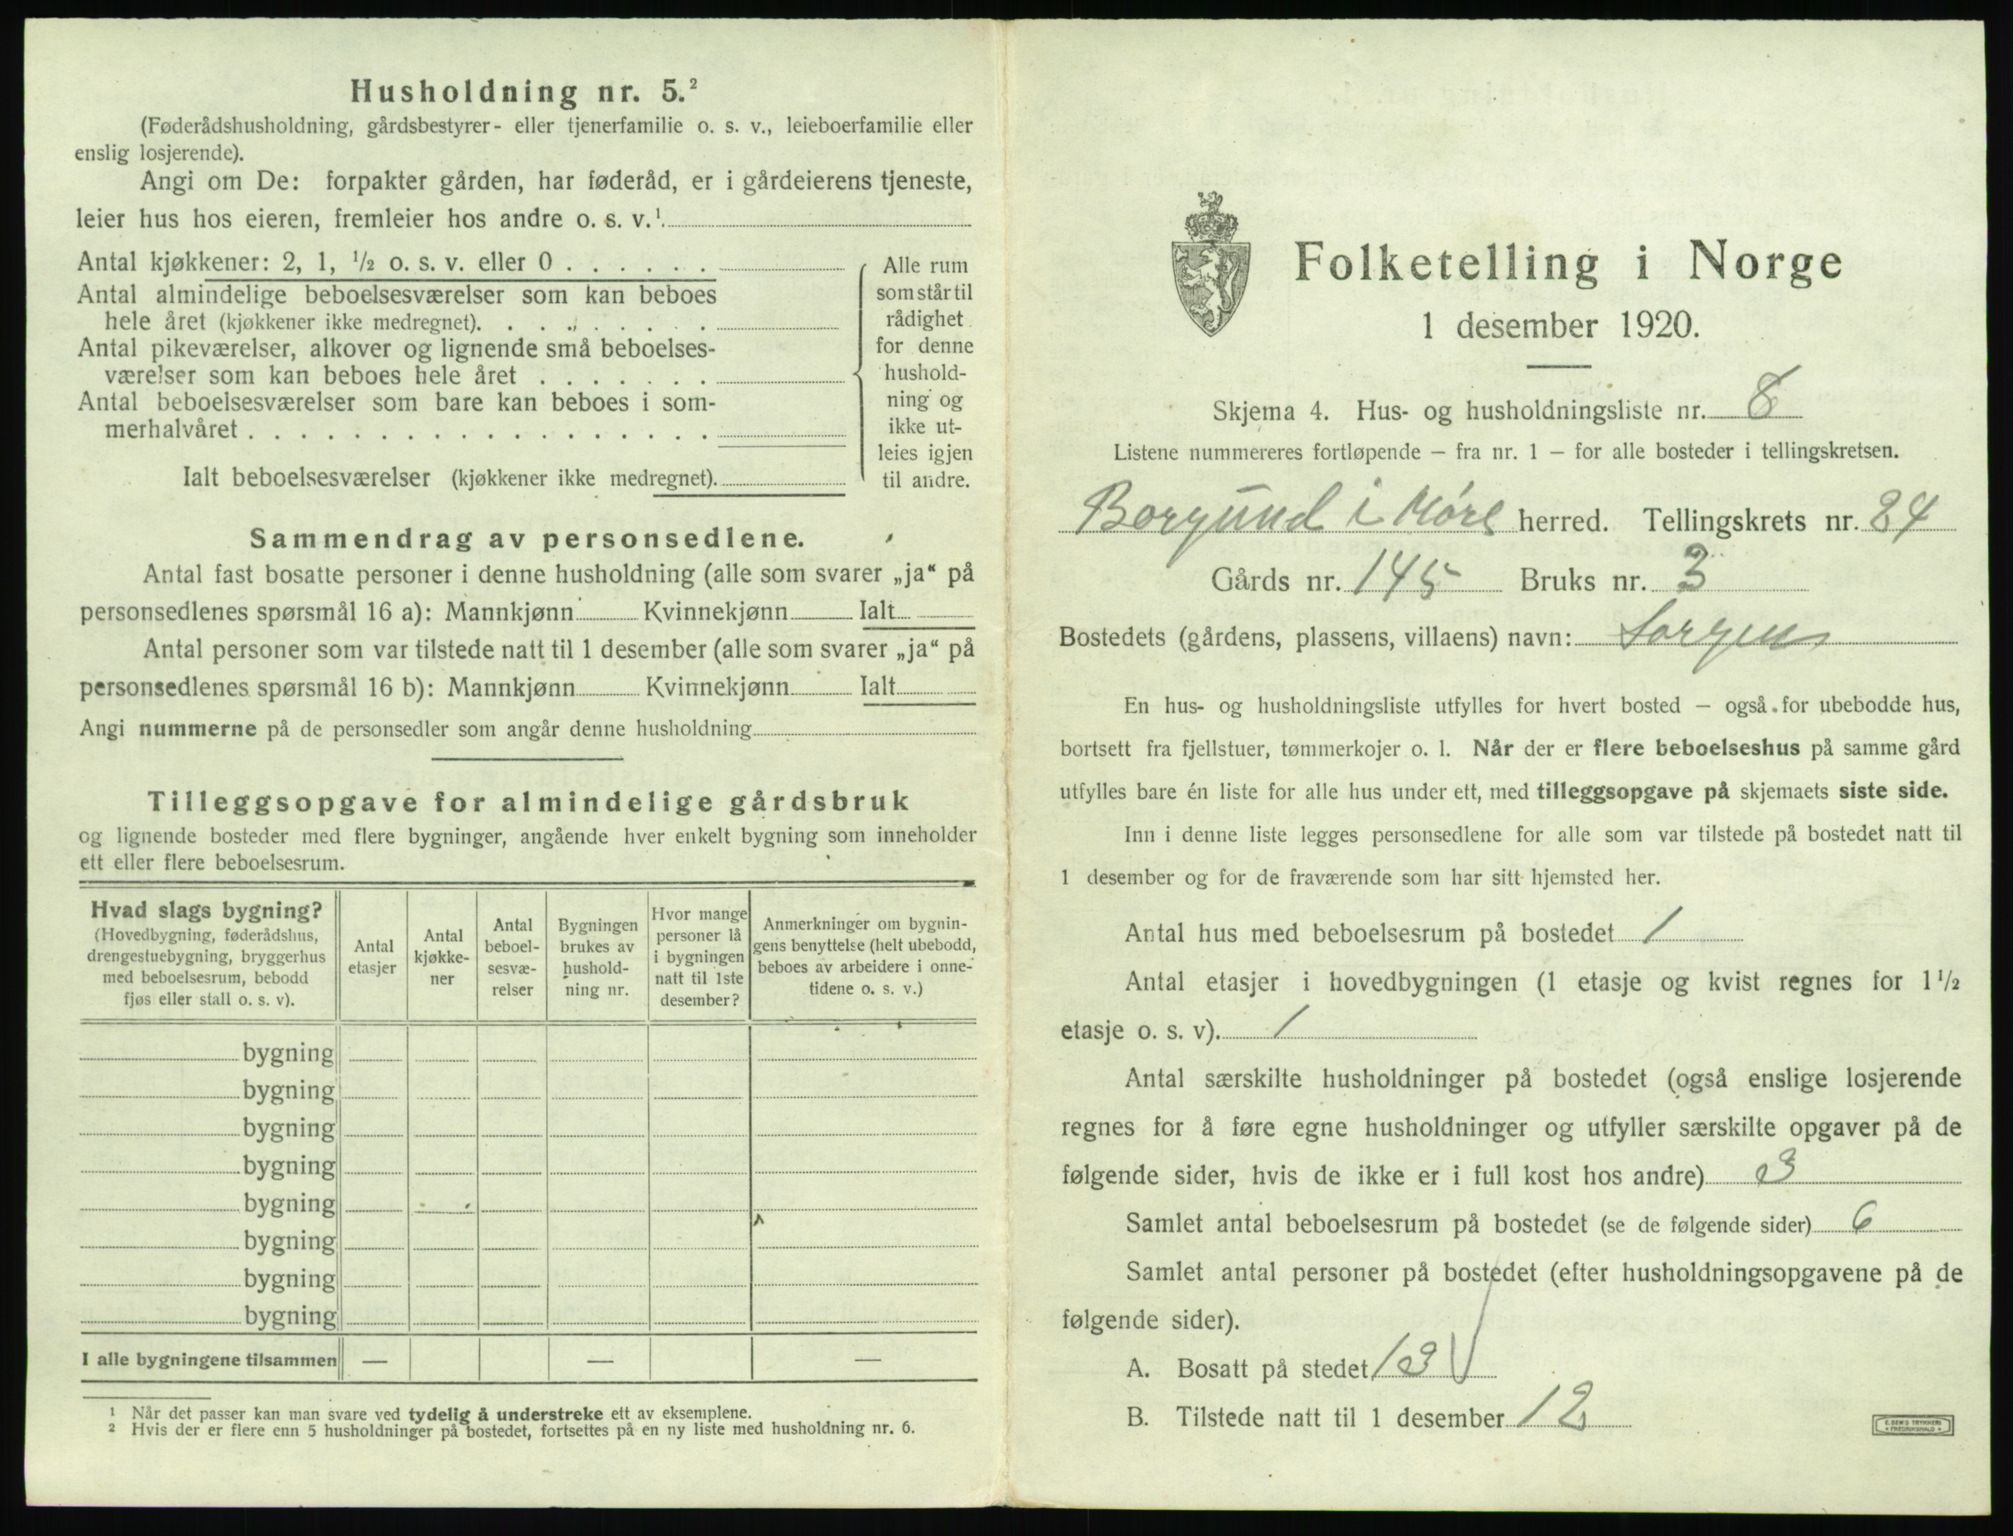 Husholdning nr. 5.²
(Føderådshusholdning, gårdsbestyrer- eller tjenerfamilie o. s. v., leieboerfamilie eller
enslig losjerende).
Angi om De: forpakter gården, har føderåd, er i gårdeierens tjeneste,
leier hus hos eieren, fremleier hos andre o. s. v.¹
Antal kjøkkener: 2, 1, ½ o. s. v. eller 0 . . . . . .
Antal almindelige beboelsesværelser som kan beboes
hele året (kjøkkener ikke medregnet). . . . . . . .
Antal pikeværelser, alkover og lignende små beboelses-
værelser som kan beboes hele året . . . . . . .
Antal beboelsesværelser som bare kan beboes i som-
merhalvåret . . . . . . . . . . . . . . . . . .
Ialt beboelsesværelser (kjøkkener ikke medregnet).
Alle rum
som står til
rådighet
for denne
hushold-
ning og
ikke ut-
leies igjen
til andre.
Sammendrag av personsedlene.
Antal fast bosatte personer i denne husholdning (alle som svarer „ja“ på
personsedlenes spørsmål 16 a): Mannkjønn Kvinnekjønn Ialt
Antal personer som var tilstede natt til 1 desember (alle som svarer „ja“ på
personsedlenes spørsmål 16 b): Mannkjønn Kvinnekjønn Ialt
Angi nummerne på de personsedler som angår denne husholdning
Tilleggsopgave for almindelige gårdsbruk
og lignende bosteder med flere bygninger, angående hver enkelt bygning som inneholder
ett eller flere beboelsesrum.
Hvad slags bygning?
(Hovedbygning, føderådshus,
drengestuebygning, bryggerhus
med beboelsesrum, bebodd
fjøs eller stall o. s. v).
Antal
etasjer
Antal
kjøkke-
ner
Antal
beboel-
sesvæ-
relser
Bygningen
brukes av
hushold-
ning nr.
Hvor mange
personer lå
i bygningen
natt til 1ste
desember?
Anmerkninger om bygnin-
gens benyttelse (helt ubebodd,
beboes av arbeidere i onne-
tidene o. s. v.)
bygning
bygning
bygning
bygning
bygning
bygning
bygning
bygning
I alle bygningene tilsammen — — —
¹ Når det passer kan man svare ved tydelig å understreke ett av eksemplene.
² Hvis der er flere enn 5 husholdninger på bostedet, fortsettes på en ny liste med husholdning nr. 6.
Folketelling i Norge
1 desember 1920.
Skjema 4. Hus- og husholdningsliste nr. 8
Listene nummereres fortløpende – fra nr. 1 – for alle bosteder i tellingskretsen.
Borgund i Møre herred. Tellingskrets nr. 24
Gårds nr. 145 Bruks nr. 3
Bostedets (gårdens, plassens, villaens) navn: Sorgen
En hus- og husholdningsliste utfylles for hvert bosted – også for ubebodde hus,
bortsett fra fjellstuer, tømmerkojer o. l. Når der er flere beboelseshus på samme gård
utfylles bare én liste for alle hus under ett, med tilleggsopgave på skjemaets siste side.
Inn i denne liste legges personsedlene for alle som var tilstede på bostedet natt til
1 desember og for de fraværende som har sitt hjemsted her.
Antal hus med beboelsesrum på bostedet 1
Antal etasjer i hovedbygningen (1 etasje og kvist regnes for 1½
etasje o. s. v). 1
Antal særskilte husholdninger på bostedet (også enslige losjerende
regnes for å føre egne husholdninger og utfyller særskilte opgaver på de
følgende sider, hvis de ikke er i full kost hos andre) 3
Samlet antal beboelsesrum på bostedet (se de følgende sider) 6
Samlet antal personer på bostedet (efter husholdningsopgavene på de
følgende sider).
A. Bosatt på stedet 13
B. Tilstede natt til 1 desember 12